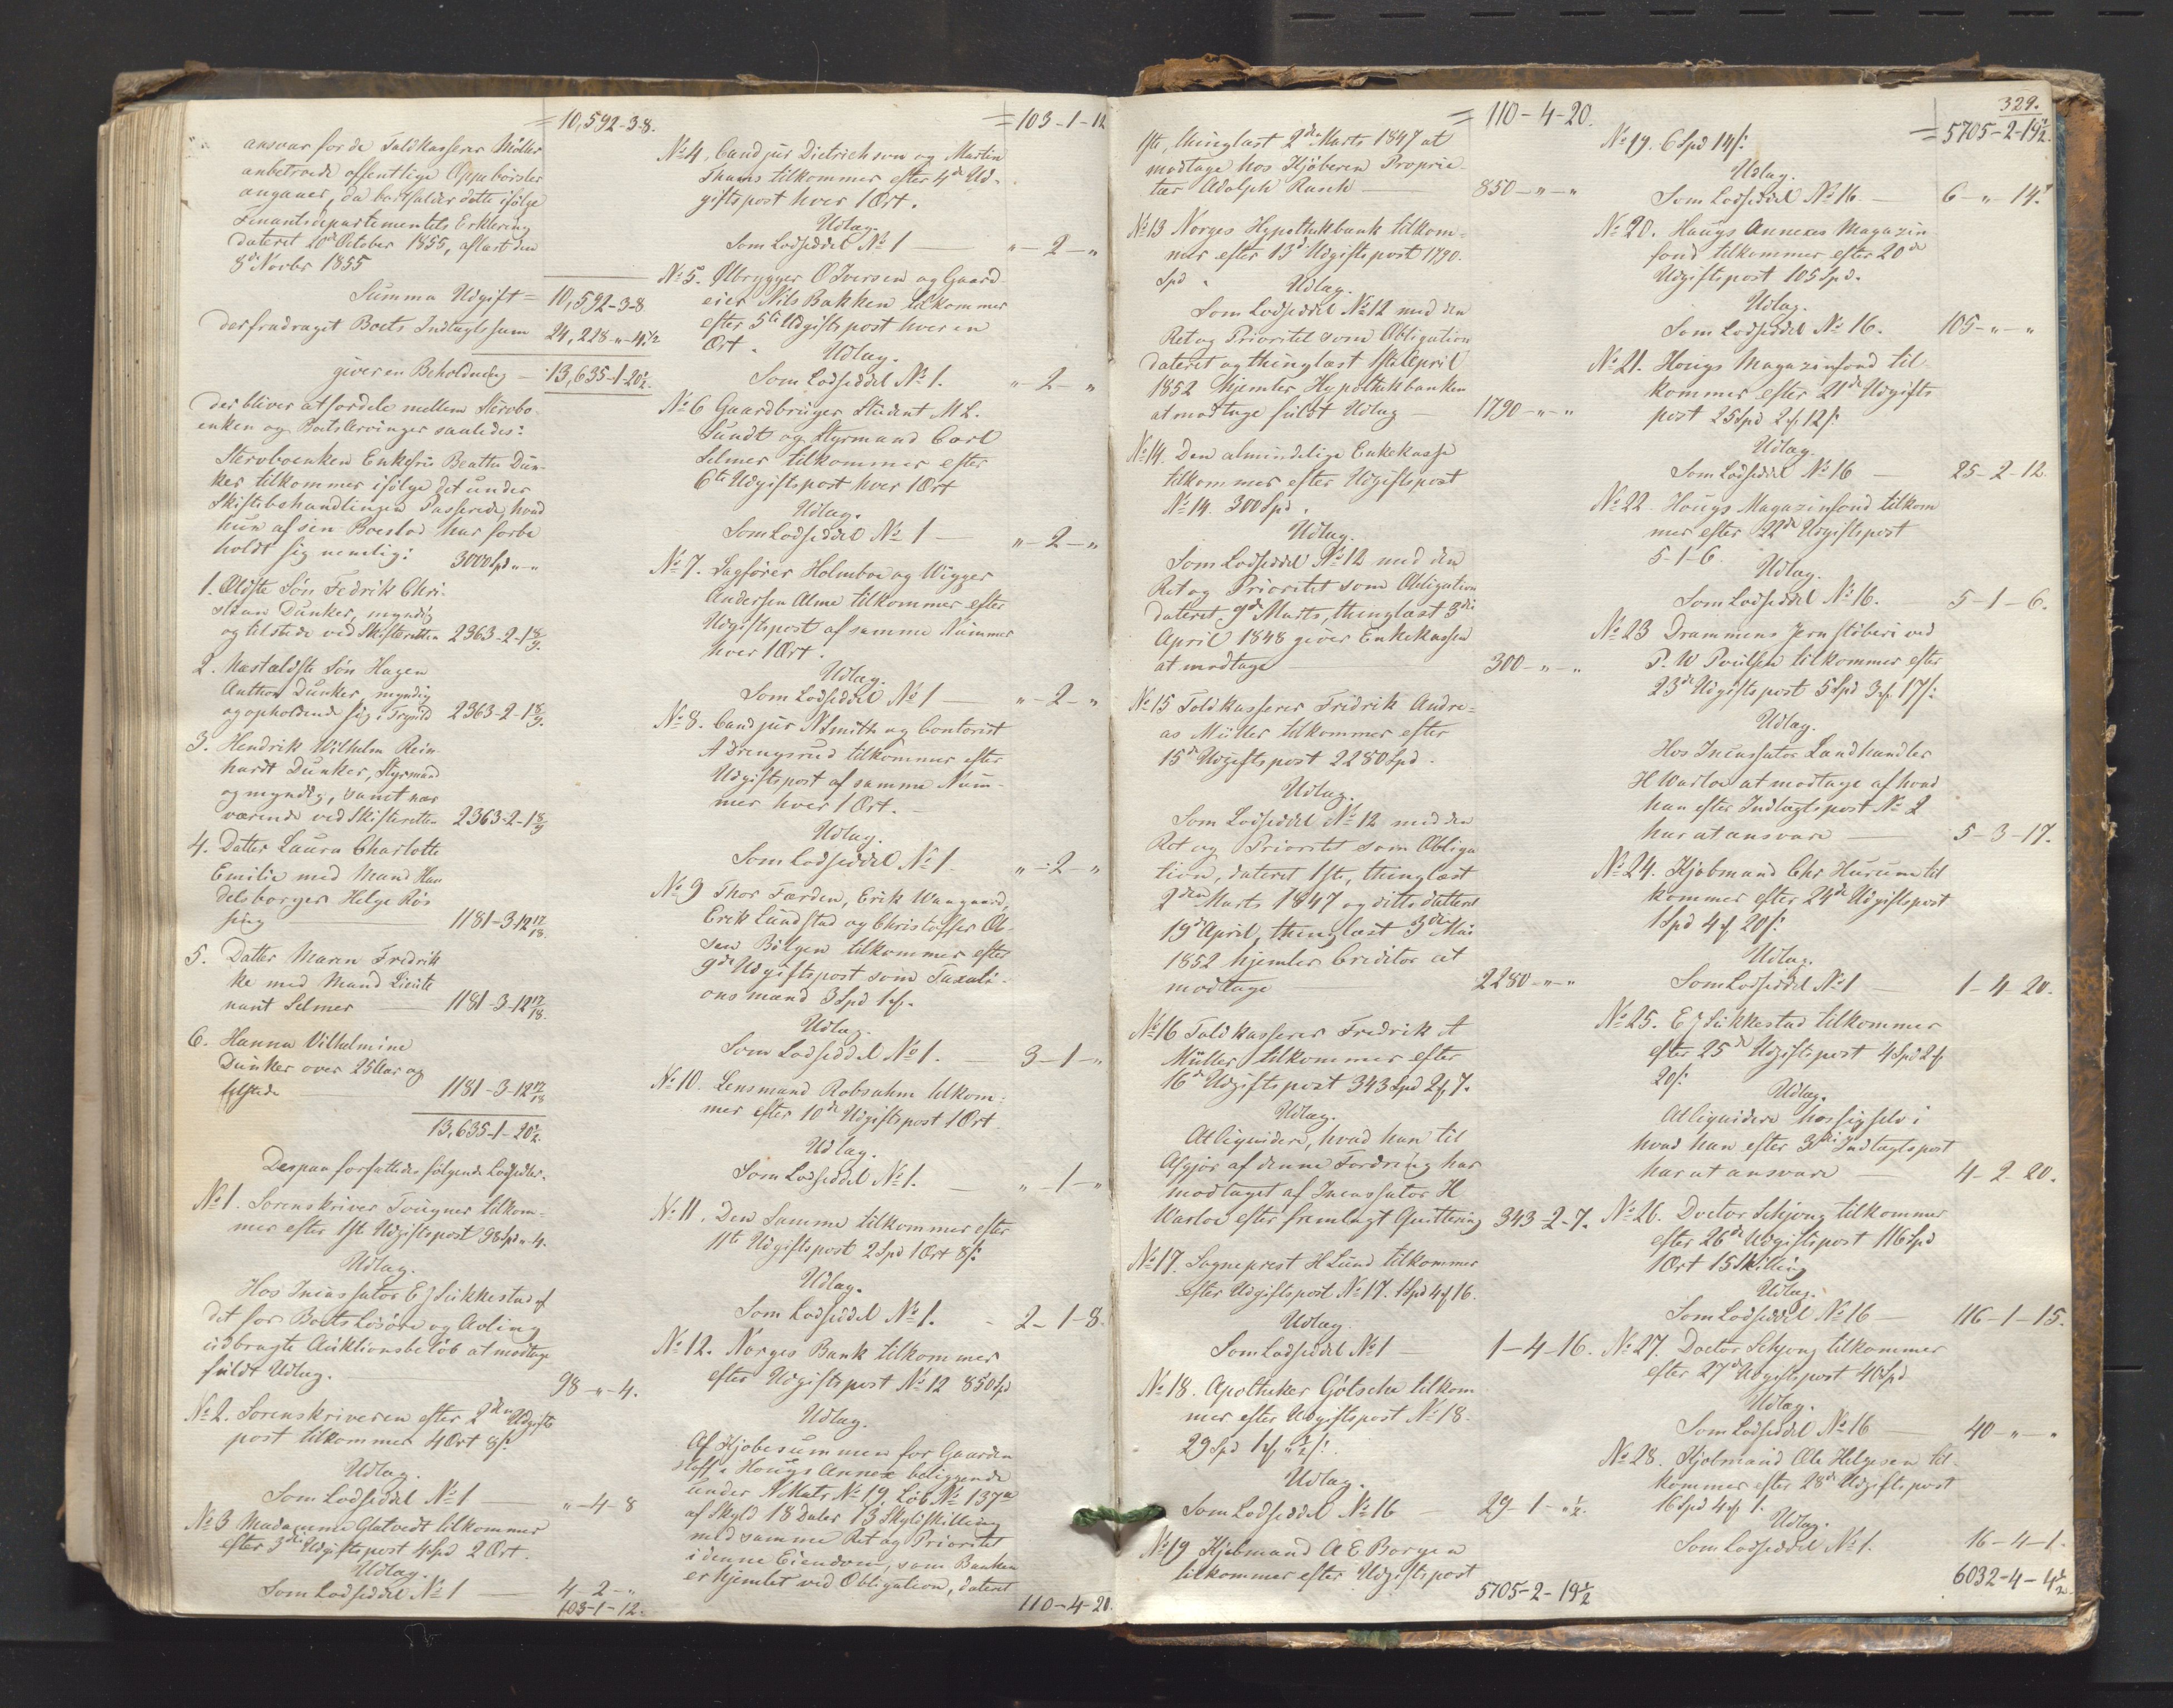 = 10,592-3-8.
ansvar for de Toldkasserer Müller
anbetroede offentlige Oppebörsler
angaaer, da bortfalder dette ifølge
Finantsdepartementets Erklering
dateret 20de October 1855, aflæst den
8de Novbr 1855
Summa Udgift = 10,592-3-8
Derfradraget Boets Indtægtssum 24,228-"-4 1/2
giver en Beholdning - 13,635-1-20 1/2.
Der bliver at fordele mellem Stervbo-
enken og Boets Arvinger saaledes:
Stervboenken Enkefrue Beathe Dun-
ker tilkommer ifølge det under
Skiftebehandlingen Passerede, hvad
hun af sin Boeslod har forbe
holdt sig nemlig: 3000 Spd "-"
1. Ældste Sön Fedrik Chri-
stian Dunker, myndig
og tilstede ved Skifteretten 2363-2-1 8/9.
2. Næstældste Sön Hagen
Anthon Dunker, myndig
og opholdende sig i Trysild 2363-2-1 8/9.
3. Hendrik Wilhelm Rein-
hardt Dunker, Styrmand
og myndig, samt nær
værende ved Skifteretten 2363-2-1 8/9
4. Datter Laura Charlotte
Emilie med Mand Han
delsborger Helge Rös
sing 1181-3-12 17/18.
5. Datter Maren Fredrik
ke med Mand Lieute
nant Selmer — 1181-3-12 17/18.
6. Hanna Vilhelmine
Dunker over 25 Aar og
tilstede 1181-3-12 17/18
13,635-1-20 1/2.
Derpaa forfattedes følgende Lodsedler.
No 1. Sorenskriver Tougner tilkom-
mer efter 1ste Udgiftspost 98 Spd "-4.
Udlæg.
Hos Incassator E J Sükkestad af
det for Boets Lösöre og Avling
udbragte Auktionsbelöb at modtage
fuldt Udlæg. 98-"-4.
No 2. Sorenskriveren efter 2den Udgifts
post tilkommer 4 Ort 8 s:
Udlæg.
Som Lodseddel No 1 — "-4-8
No 3 Madamme Glatvedt tilkommer
efter 3die Udgiftspost 4 Spd 2 Ort.
Udlæg.
Som Lodseddel No 1 4-2-"
103-1-12.
= 103-1-12
No 4. Cand jur Dietrichson og Martin
Thams tilkommer efter 4de Ud-
giftspost hver 1 Ort.
Udlæg.
Som Lodseddel No 1 — "-2-"
No 5. Ølbrygger O Iversen og Gaard
eier Nils Bakken tilkommer
efter 5te Udgiftspost hver en
Ort. Udlæg.
Som Lodseddel No 1. "-2-"
No 6 Gaardbruger Student M L.
Sundt og Styrmand Carl
Selmer tilkommer efter
6te Udgiftspost hver 1 Ort
Udlæg.
Som Lodseddel No 1 — "-2-"
No 7. Sagfører Holmboe og Wigger
Andersen Alme tilkommer efter
Udgiftspost af samme Nummer
hver 1 Ort.
Udlæg.
Som Lodseddel No 1 — "-2-"
No 8. Cand jur N Smith og Contorist
A Drengsrud tilkommer efter
Udgiftspost af samme Num-
mer hver 1 Ort.
Udlæg.
Som Lodseddel No 1. "-2-"
No 9 Thor Færden, Erik Waagaard,
Erik Lundstad og Christoffer Ol-
sen Bölgen tilkommer efter
9de Udgiftspost som Taxati-
onsmænd 3 Spd 1 ort.
Udlæg.
Som Lodseddel No 1. 3-1-"
No 10. Lensmand Robsahm tilkom-
mer efter 10de Udgiftspost 1 Ort
Udlæg.
Som Lodseddel No 1. — "-1-"
No 11. Den Samme tilkommer efter
11te Udgiftspost 2 Spd 1 Ort 8 s:
Udlæg.
Som Lodseddel No 1. - 2-1-8.
No 12. Norges Bank tilkommer
efter Udgiftspost No 12 850 Spd
Udlæg.
Af Kjøbesummen for Gaarden
Hoff i Hougs Annex beliggende
under N Matr No 19, Löb No 137a
af Skyld 18 Daler 13 Skylskilling
med samme Ret og Prioritet
i denne Eiendom, som Banken
er hjemlet ved Obligation, dateret
110-4-20.
= 110-4-20.
1ste, thinglæst 2den Marts 1847 at
modtage hos Kjöberen Proprie-
tær Adolph Rasch — 850-"-"
No 13 Norges Hypothekbank tilkom-
mer efter 13de Udgiftspost 1790.
Spd. Udlæg.
Som Lodseddel No 12 med den
Ret og Prioritet som Obligation
dateret og thinglæst 1ste April
1852 hjemler Hypothekbanken
at modtage fuldt Udlæg — 1790-"-"
No 14. Den almindelige Enkekasse
tilkommer efter Udgiftspost
No 14. 300 Spd.
Udlæg.
Som Lodseddel No 12 med den
Ret og Prioritet som Obligation
dateret 9de Marts, thinglæst 3die
April 1848 giver Enkekassen
at modtage — 300-"-"
No 15 Toldkasserer Fridrik Andre-
as Müller tilkommer efter
15de Udgiftspost 2280 Spd.
Udlæg.
Som Lodseddel No 12 med den
Ret og Prioritet som Obliga
tion, dateret 1ste, thinglæst
2den Marts 1847 og ditto dateret
19de April, thinglæst 3die Mai
1852 hjemler Creditor at
modtage 2280-"-"
No 16 Toldkasserer Fredrik A
Müller tilkommer efter
16de Udgiftspost 343 Spd 2 ort 7.
Udlæg.
At liquidere, hvad han til
Afgjør af denne Fordring har
modtaget af Incassator H
Warloe efter fremlagt Qvittering 343-2-7.
No 17. Sogneprest H Lund tilkommer
efter Udgiftspost No 17. 1 Spd 4 ort 16.
Udlæg.
Som Lodseddel No 1 — 1-4-16.
No 18. Apotheker Götsche tilkom
mer efter Udgiftspost No 18.
29 Spd 1 ort " 1/2 s:
Udlæg.
Som Lodseddel No 16 29-1-" 1/2.
No 19 Kjøbmand A E Borgen
tilkommer efter Udgiftspost
5705-2-19 1/2
329.
= 5705-2-19 1/2.
No 19. 6 Spd 14 s:
Udlæg.
Som Lodseddel No 16. — 6-"-14.
No 20. Haugs Annexes Magazin
fond tilkommer efter 20de
Udgiftspost 105 Spd.
Udlæg.
Som Lodseddel No 16. 105-"-"
No 21. Hougs Magazinfond til
kommer efter 21de Udgifts
post 25 Spd 2 ort 12 s:
Udlæg.
Som Lodseddel No 16 — 25-2-12.
No 22. Hougs Magazinfond tilkom
mer efter 22de Udgiftspost
5-1-6. Udlæg.
Som Lodseddel No 16. — 5-1-6.
No 23 Drammens Jernstöberi ved
P. W Poulsen tilkommer efter
23de Udgiftspost 5 Spd 3 ort 17 s:
Udlæg.
Hos Incassator Landhandler
H Warloe at modtage af hvad
han efter Indtægtspost No 2
har at ansvare — 5-3-17.
No 24. Kjøbmand Chr Hurum til
kommer efter 24de Udgiftspost
1 Spd 4 ort 20 s:
Udlæg.
Som Lodseddel No 1 — 1-4-20.
No 25. E J Sükkestad tilkommer
efter 25de Udgiftspost 4 Spd 2 ort
20 s: Udlæg.
At liquidere hos sig selv i
hvad han efter 3die Indtægtspost
har at ansvare 4-2-20.
No 26. Doctor Schjong tilkommer
efter 26de Udgiftspost 116 Spd
1 Ort 15 Skilling
Udlæg.
Som Lodseddel No 16 — 116-1-15.
No 27. Doctor Schjong tilkommer
efter 27de Udgiftspost 40 Spd
Udlæg.
Som Lodseddel No 16 40-"-"
No 28. Kjøbmand Ole Helgesen til-
kommer efter 28de Udgiftspost
16 Spd 4 ort 1. Udlæg.
Som Lodseddel No 1. 16-4-1.
6032-4-4 1/2.